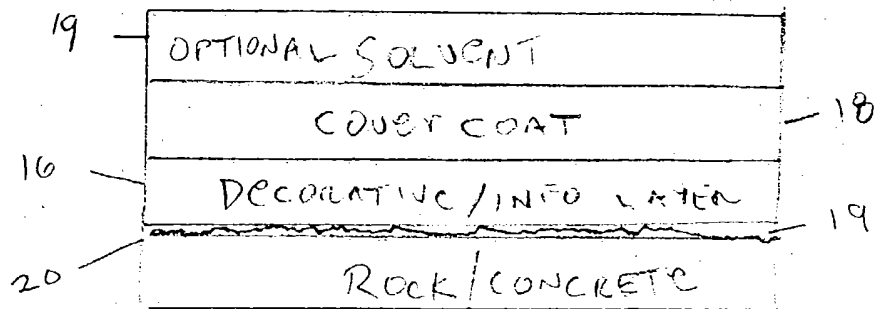 19
OPTIONAL SOLVENT
COVER COAT
18
16
DECORATIVE/INFO LAYER
19
20
ROCK/CONCRETE